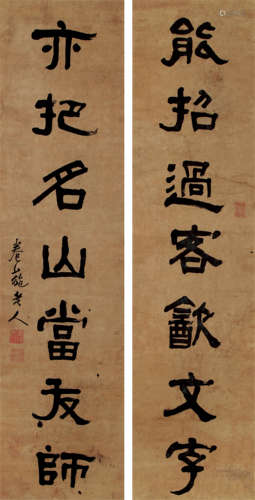 能招過客飲文字
亦把名山當友師
老人